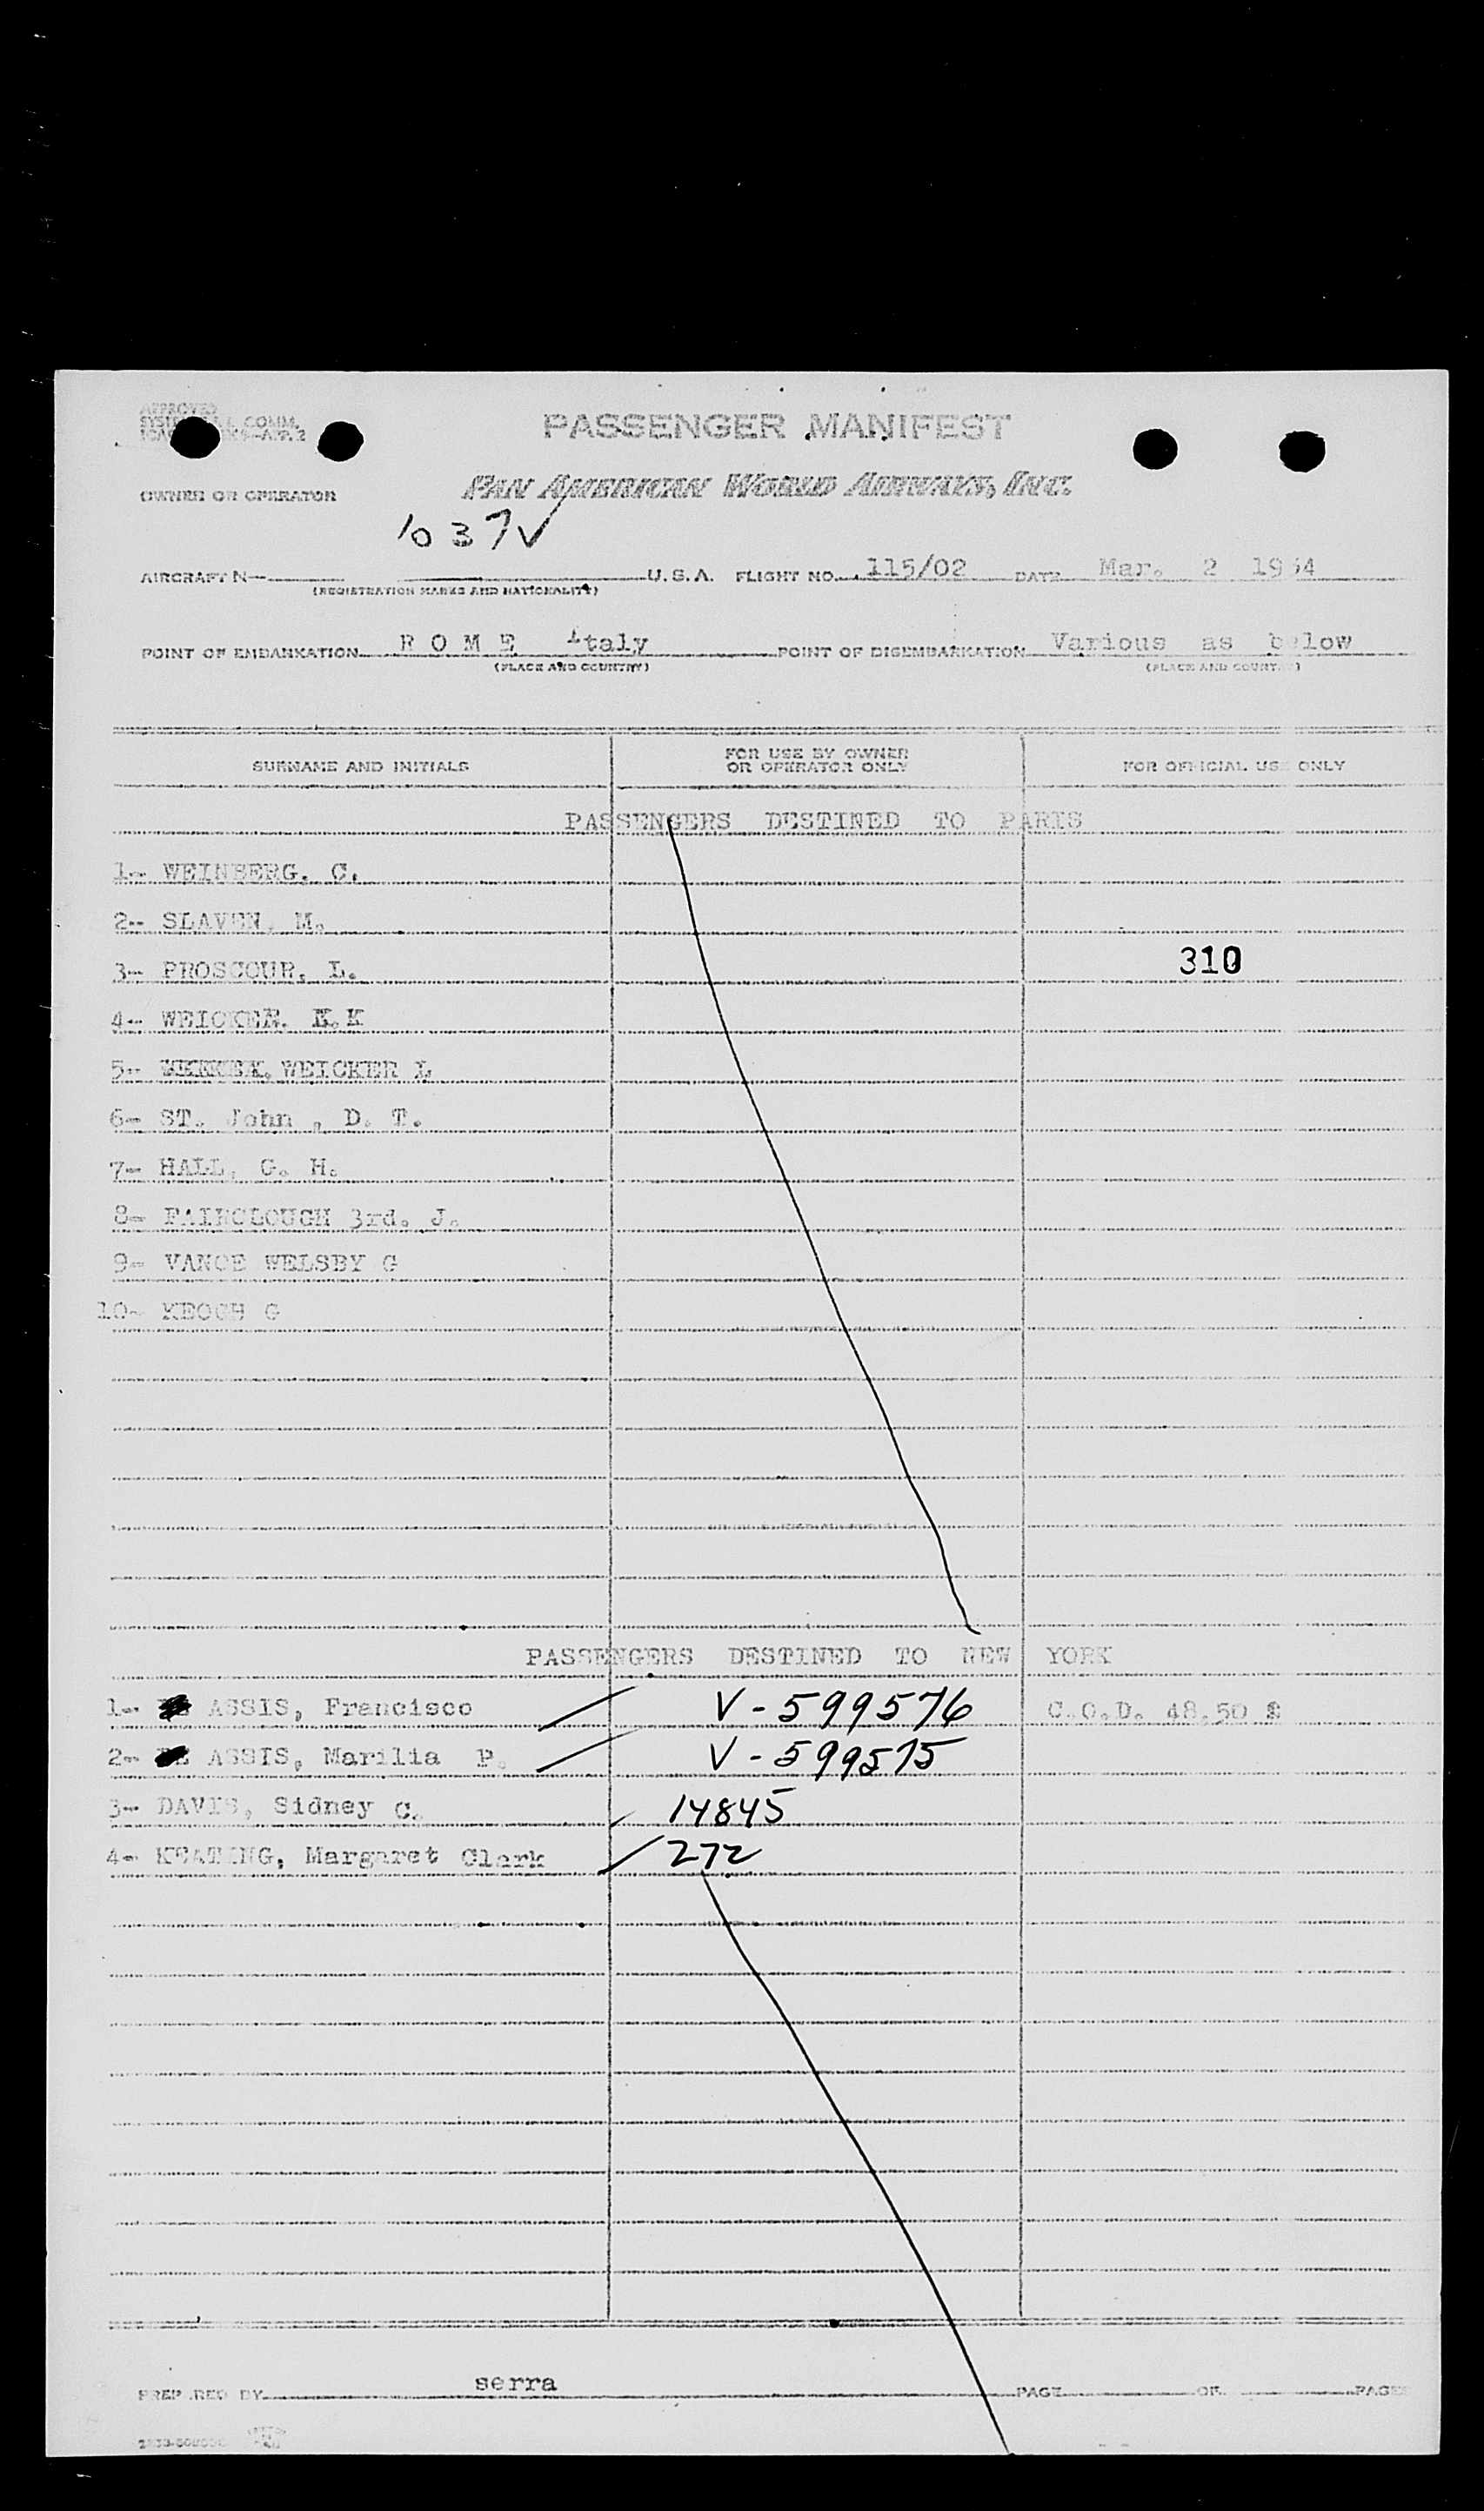 APPROVED
COMM.
PASSENGER MANIFEST
OWNER OR OPERATOR PAN AMERICAN WORLD AIRWAYS, INC.
1037V
AIRCRAFT N- U. S. A. FLIGHT NO. 115/02 DATE Mar. 2 1954
(REGISTRATION MARKS AND NATIONALITY)
POINT OF EMBARKATION R O M E Italy POINT OF DISEMBARKATION Various as below
(PLACE AND COUNTRY) (PLACE AND COUNTRY)
SURNAME AND INITIALS FOR USE BY OWNER OR OPERATOR ONLY FOR OFFICIAL USE ONLY
PASSENGERS DESTINED TO PARIS
1- WEINBERG. C.
2- SLAVEN, M.
3- PROSCOUR, L. 310
4- WEICKER. K
5- WEICKER L
6- ST. John , D. T.
7- HALL, G. H.
8- FAIRCLOUGH 3rd. J.
9- VANCE WELSBY G
10- KEOGH G
PASSENGERS DESTINED TO NEW YORK
1- ASSIS, Francisco V-599576 C.O.D. 48.50 $
2- ASSIS, Marilia P. V-599575
3- DAVIS, Sidney C. 14845
4- KEATING, Margaret Clark 272
PREPARED BY serra PAGE OF PAGES